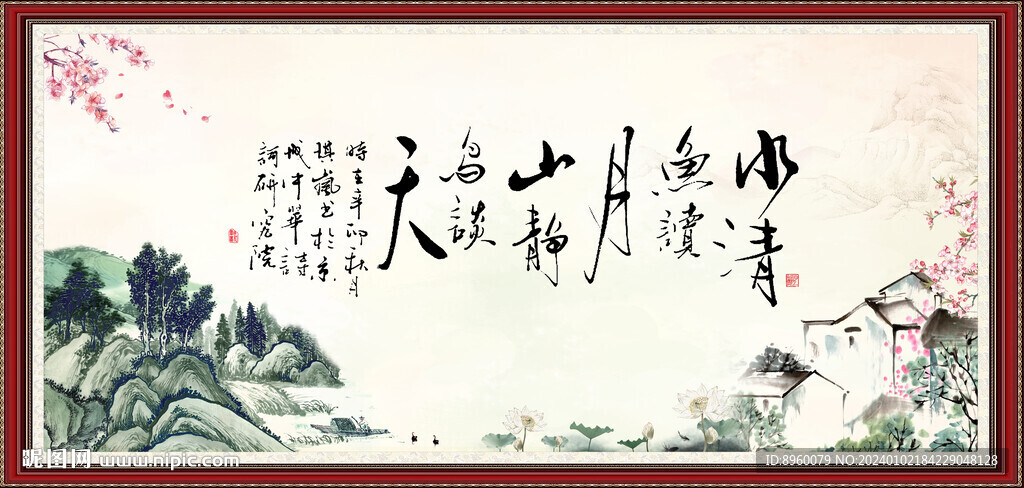 水清
魚讀
月
山靜
鳥談
天
時在辛卯秋月
琪嵐书於京
城中華詩
詞研究院
昵图网 www.nipic.com
ID:8960079 NO:20240102184229048128